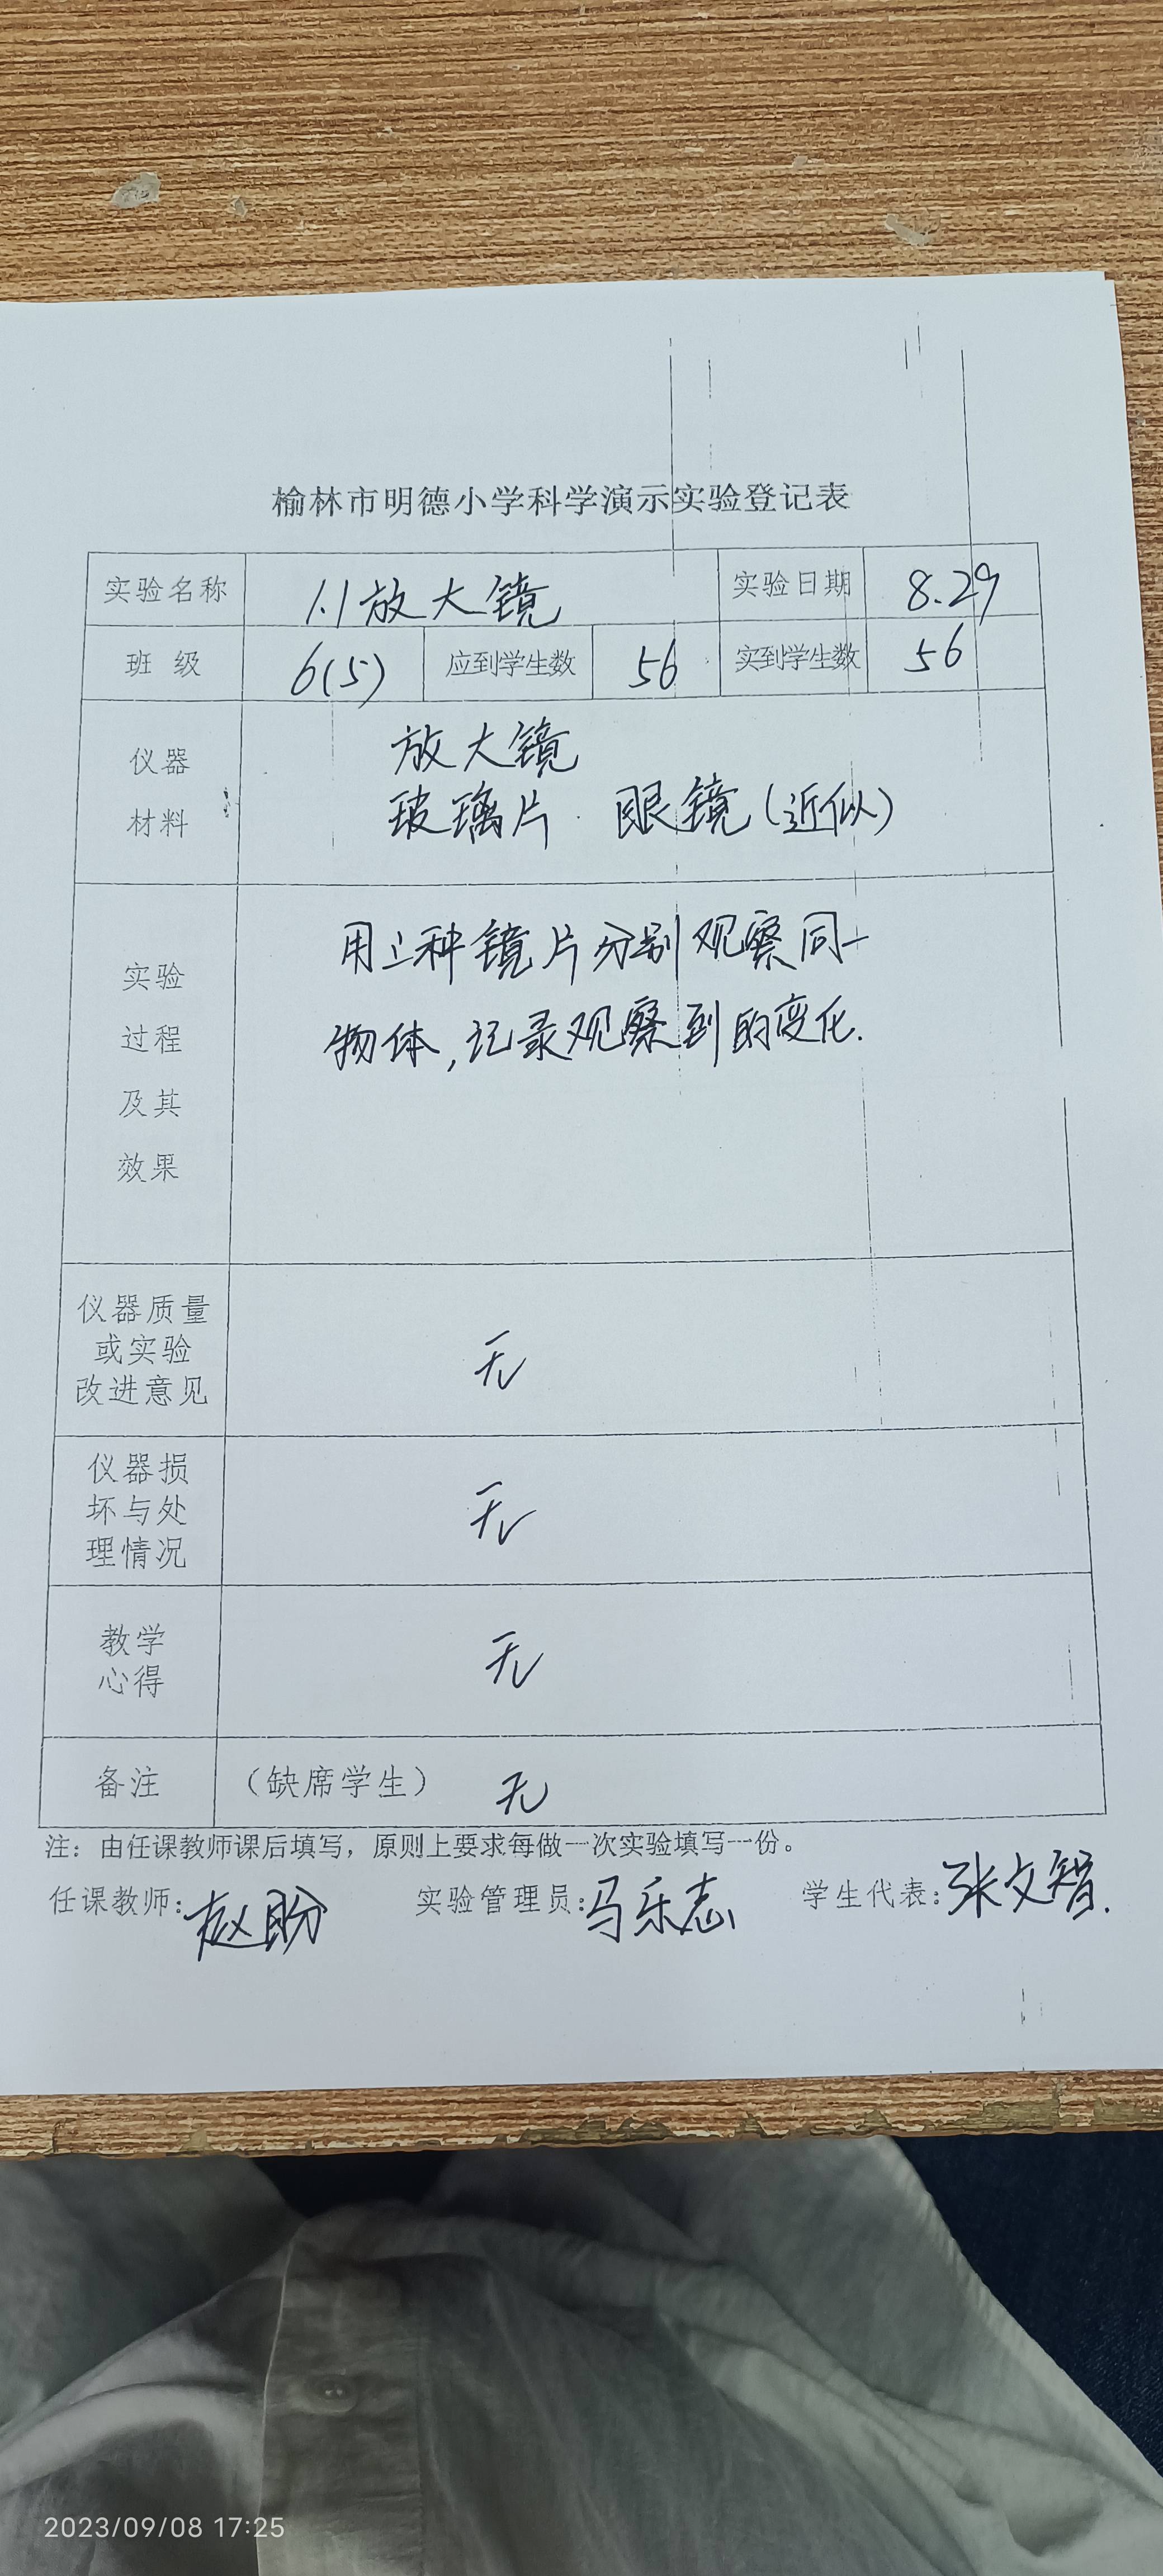 榆林市明德小学科学演示实验登记表
实验名称 1.1放大镜 实验日期 8.29
班级 6(5) 应到学生数 56 实到学生数 56
仪器
材料
放大镜
玻璃片 眼镜(近似)
实验
过程
及其
效果
用三种镜片分别观察同一
物体,记录观察到的变化.
仪器质量
或实验
改进意见
无
仪器损
坏与处
理情况
无
教学
心得
无
备注 （缺席学生） 无
注：由任课教师课后填写，原则上要求每做一次实验填写一份。
任课教师:赵盼 实验管理员:马乐志 学生代表:张文智.
2023/09/08 17:25